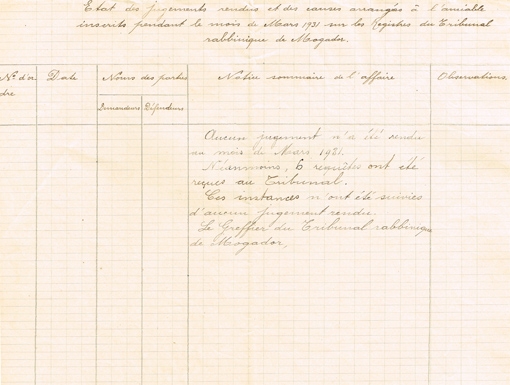 Etat des jugements rendus et des causes arrangées à l'amiable
inscrits pendant le mois de Mars 1931 sur les Registres du Tribunal
rabbinique de Mogador.
N° d'or
dre
Date
Noms des parties
Demandeurs
Défendeurs
Notice sommaire de l'affaire
Observations.
Aucun jugement n'a été rendu
au mois de Mars 1931.
Néanmoins, 6 requêtes ont été
reçues au Tribunal.
Ces instances n'ont été suivies
d'aucun jugement rendu.
Le Greffier du Tribunal rabbinique
de Mogador,